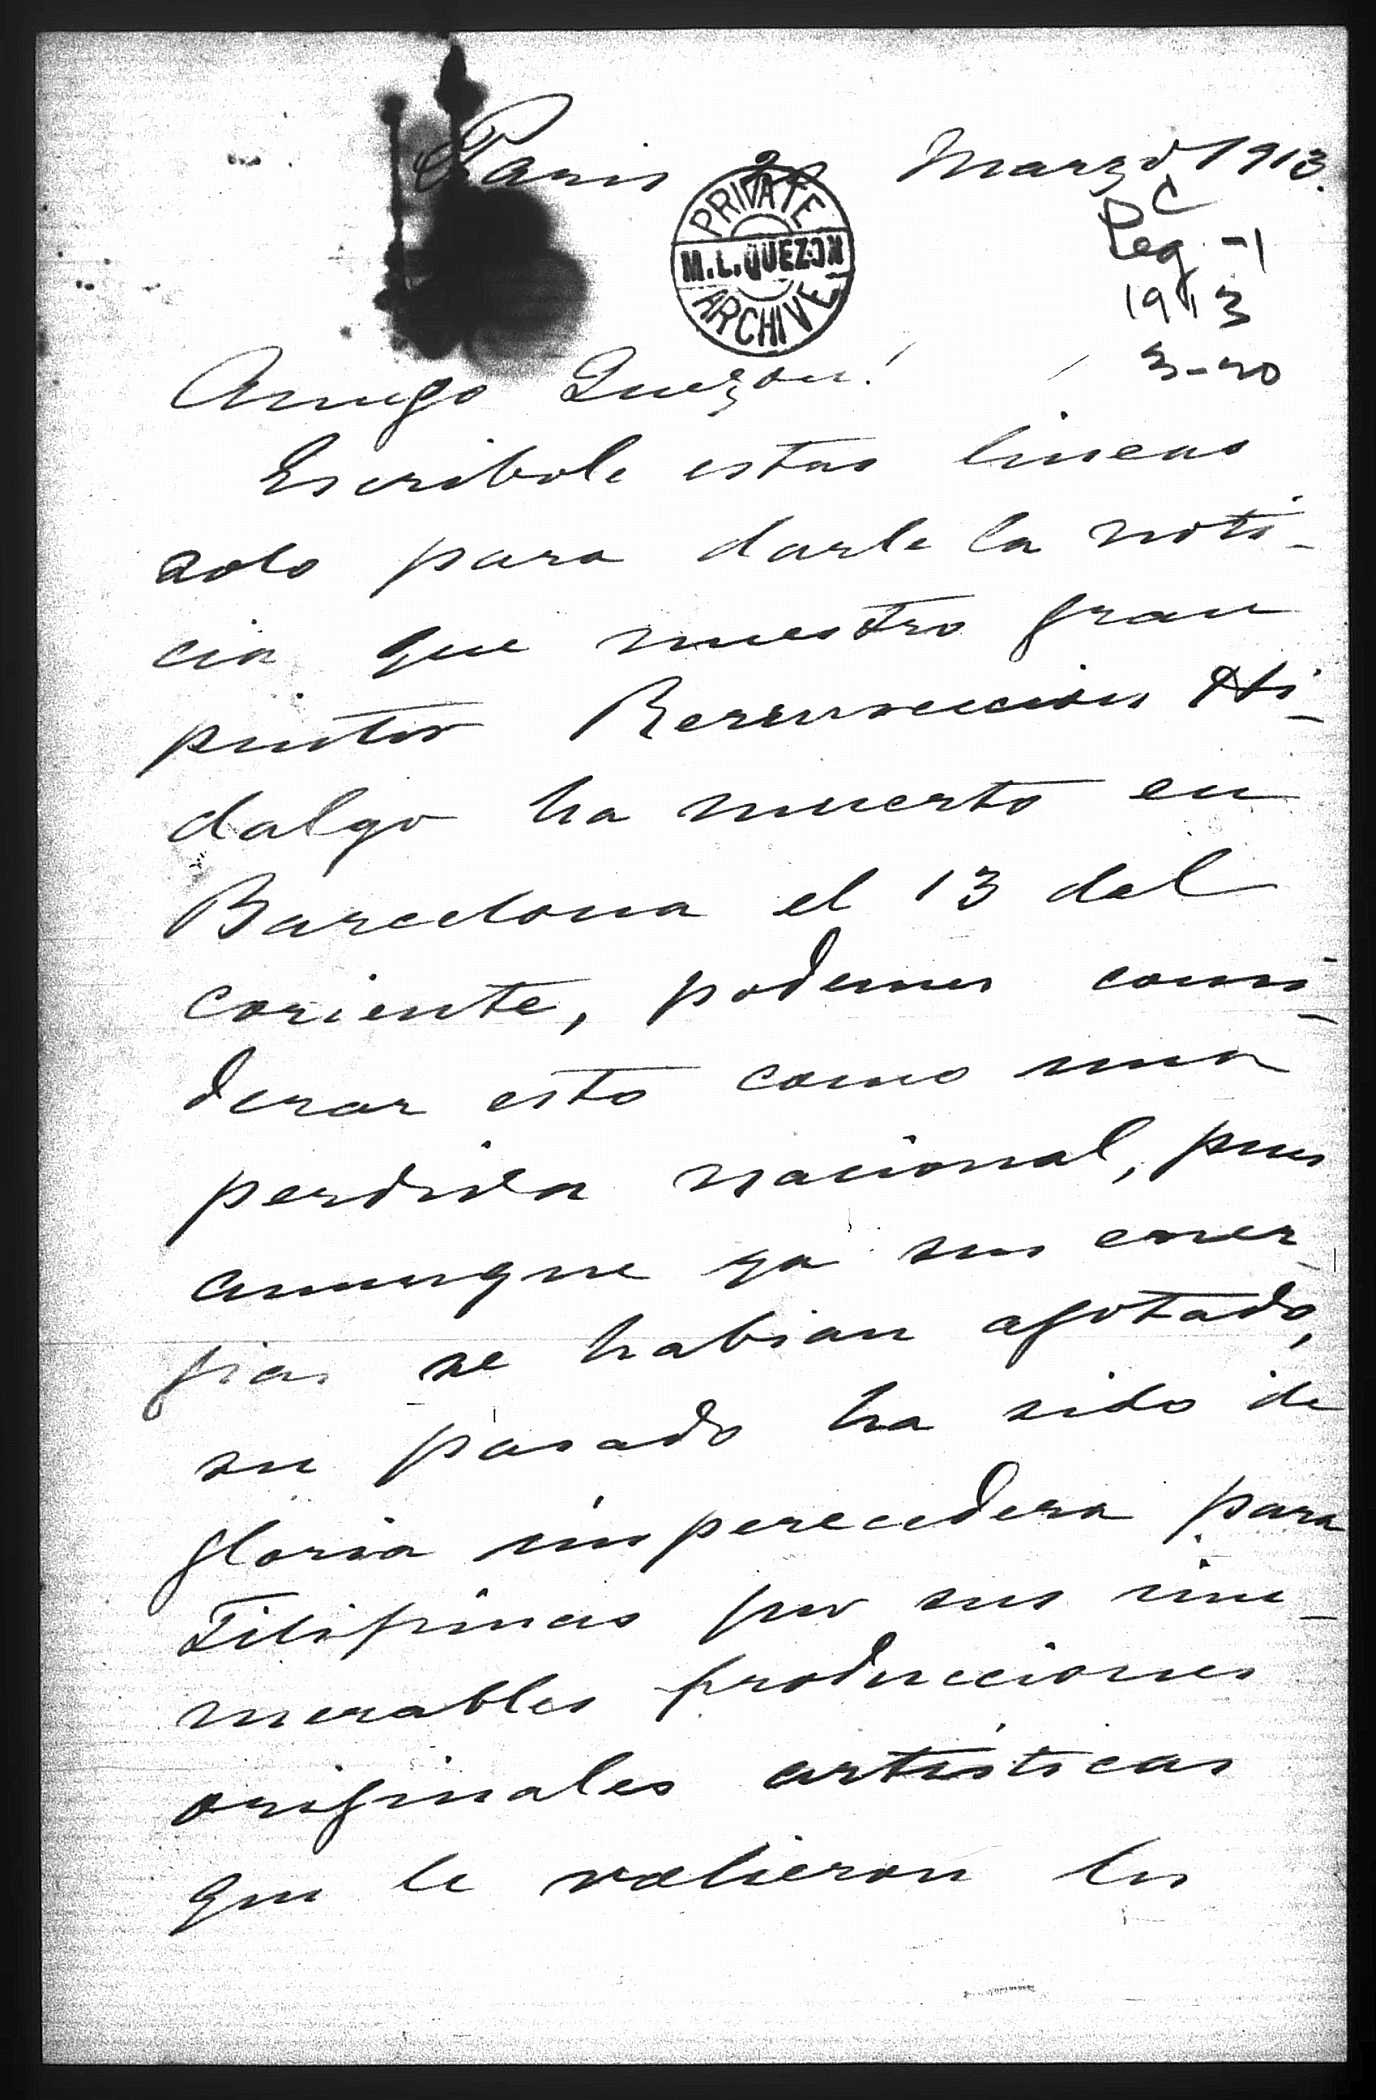 Paris 20 Marzo 1913.
PRIVATE
M.L.QUEZON
ARCHIVE
C
Leg -1
1913
3-20
Amigo Quezon:
Escribole estas lineas
solo para darle la noti-
cia que nuestro gran
pintor Resurreccion Hi-
dalgo ha muerto en
Barcelona el 13 del
coriente, podemos consi-
derar esto como una
perdida nacional, pues
aunque ya sus ener-
gias se habian agotado,
su pasado ha sido de
gloria imperecedera para
Filipinas por sus inu-
merables producciones
originales artísticas
que le valieron los